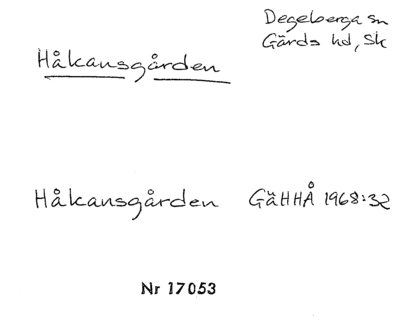 Degeberga sn
Gärds hd, Sk
Håkansgården
Håkansgården GäHHÅ 1968:32
Nr 17053